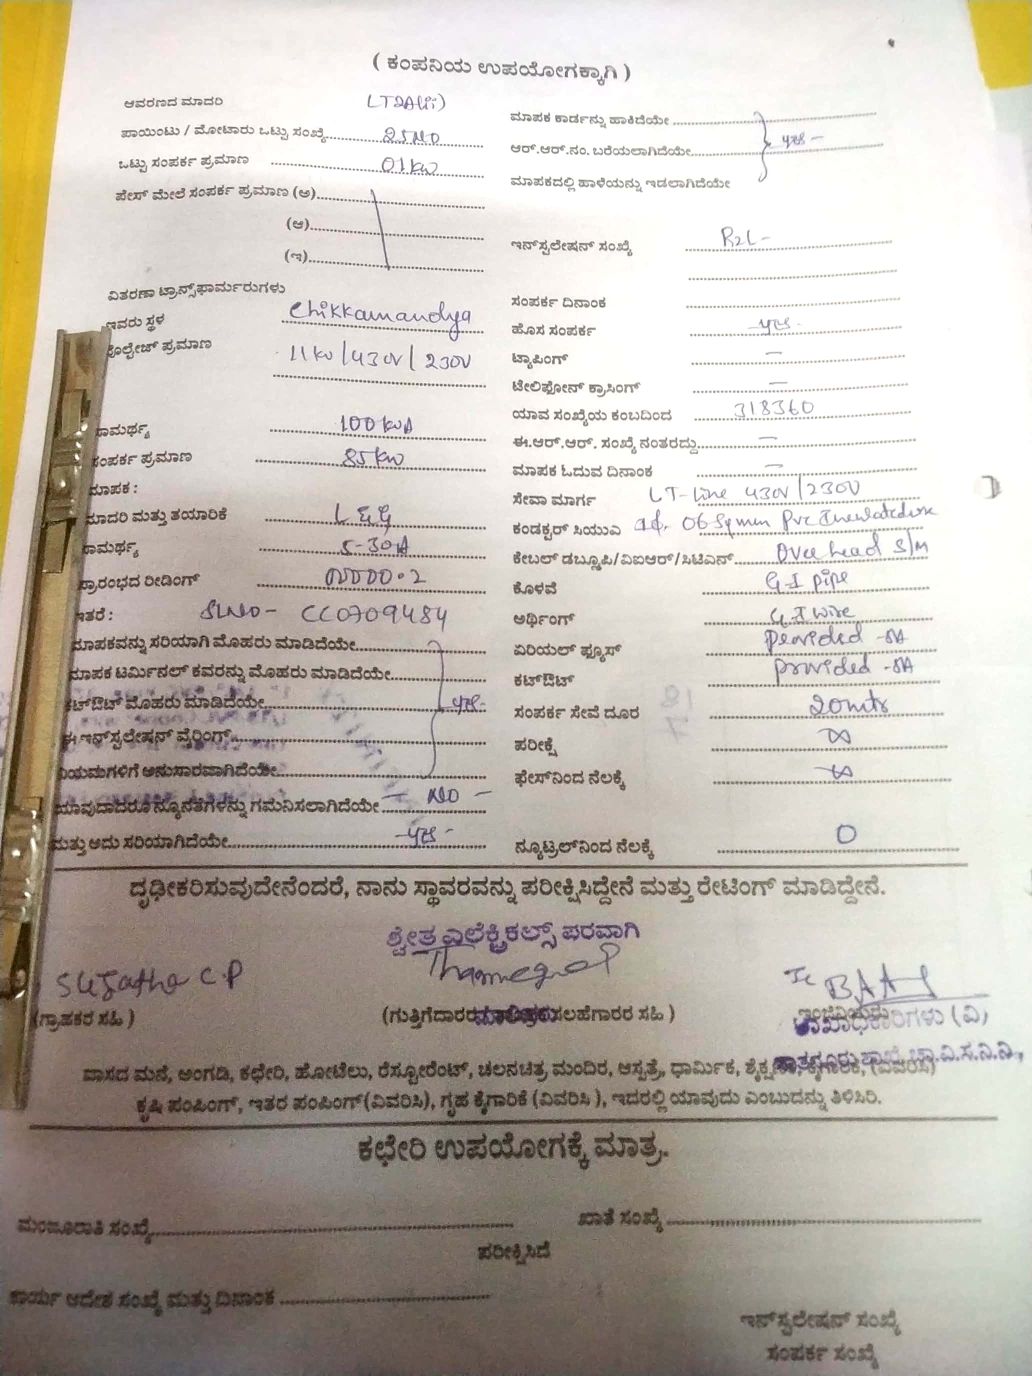 ( ಕಂಪನಿಯ ಉಪಯೋಗಕ್ಕಾಗಿ )
ಆವರಣದ ಮಾದರಿ LT2A(ii)
ಪಾಯಿಂಟು / ಮೋಟಾರು ಒಟ್ಟು ಸಂಖ್ಯೆ 25NO
ಒಟ್ಟು ಸಂಪರ್ಕ ಪ್ರಮಾಣ 01KW
ಪೇಸ್ ಮೇಲೆ ಸಂಪರ್ಕ ಪ್ರಮಾಣ (ಅ)
(ಆ)
(ಇ)
ವಿತರಣಾ ಟ್ರಾನ್ಸ್‌ಫಾರ್ಮರುಗಳು
ಇವರು ಸ್ಥಳ Chikkamandya
ವೋಲ್ಟೇಜ್ ಪ್ರಮಾಣ 11KV/430V/230V
ಸಾಮರ್ಥ್ಯ 100KVA
ಸಂಪರ್ಕ ಪ್ರಮಾಣ 85KW
ಮಾಪಕ :
ಮಾದರಿ ಮತ್ತು ತಯಾರಿಕೆ L&G
ಸಾಮರ್ಥ್ಯ 5-30A
ಪ್ರಾರಂಭದ ರೀಡಿಂಗ್ 00000.2
ಇತರೆ : SLNO- CC0709484
ಮಾಪಕವನ್ನು ಸರಿಯಾಗಿ ಮೊಹರು ಮಾಡಿದೆಯೇ
ಮಾಪಕ ಟರ್ಮಿನಲ್ ಕವರನ್ನು ಮೊಹರು ಮಾಡಿದೆಯೇ
ಕಟ್‌ಔಟ್ ಮೊಹರು ಮಾಡಿದೆಯೇ yes-
ಈ ಇನ್‌ಸ್ಪಲೇಷನ್ ವೈರಿಂಗ್
ನಿಯಮಗಳಿಗೆ ಅನುಸಾರವಾಗಿದೆಯೇ
ಯಾವುದಾದರೂ ನ್ಯೂನತೆಗಳನ್ನು ಗಮನಿಸಲಾಗಿದೆಯೇ - NO -
ಮತ್ತು ಅದು ಸರಿಯಾಗಿದೆಯೇ -yes-
ಮಾಪಕ ಕಾರ್ಡನ್ನು ಹಾಕಿದೆಯೇ
ಆರ್.ಆರ್.ನಂ. ಬರೆಯಲಾಗಿದೆಯೇ yes-
ಮಾಪಕದಲ್ಲಿ ಹಾಳೆಯನ್ನು ಇಡಲಾಗಿದೆಯೇ
ಇನ್‌ಸ್ಪಲೇಷನ್ ಸಂಖ್ಯೆ R2L-
ಸಂಪರ್ಕ ದಿನಾಂಕ
ಹೊಸ ಸಂಪರ್ಕ -yes-
ಟ್ಯಾಪಿಂಗ್ -
ಟೇಲಿಫೋನ್ ಕ್ರಾಸಿಂಗ್ -
ಯಾವ ಸಂಖ್ಯೆಯ ಕಂಬದಿಂದ 318360
ಈ.ಆರ್.ಆರ್. ಸಂಖ್ಯೆ ನಂತರದ್ದು -
ಮಾಪಕ ಓದುವ ದಿನಾಂಕ -
ಸೇವಾ ಮಾರ್ಗ LT-Line 430V/230V
ಕಂಡಕ್ಟರ್ ಸಿಯುಎ 06 Sqmm Pvc
ಕೇಬಲ್ ಡಬ್ಲೂಪಿ/ವಿಐಆರ್/ಸಿಟಿಎನ್ Over head S/M
ಕೊಳವೆ G.I pipe
ಅರ್ಥಿಂಗ್ G.I wire
ಏರಿಯಲ್ ಫ್ಯೂಸ್ Provided -5A
ಕಟ್‌ಔಟ್ Provided -5A
ಸಂಪರ್ಕ ಸೇವೆ ದೂರ 20mtr
ಪರೀಕ್ಷೆ ∞
ಫೇಸ್‌ನಿಂದ ನೆಲಕ್ಕೆ ∞
ನ್ಯೂಟ್ರಲ್‌ನಿಂದ ನೆಲಕ್ಕೆ 0
ದೃಢೀಕರಿಸುವುದೇನೆಂದರೆ, ನಾನು ಸ್ಥಾವರವನ್ನು ಪರೀಕ್ಷಿಸಿದ್ದೇನೆ ಮತ್ತು ರೇಟಿಂಗ್ ಮಾಡಿದ್ದೇನೆ.
ಶ್ವೇತ ಎಲೆಕ್ಟ್ರಿಕಲ್ಸ್ ಪರವಾಗಿ
Sujatha C.P
(ಗ್ರಾಹಕರ ಸಹಿ ) (ಗುತ್ತಿಗೆದಾರರ ಸಲಹೆಗಾರರ ಸಹಿ )
ಶಾಖಾಧಿಕಾರಿಗಳು (ವಿ)
ವಾಸದ ಮನೆ, ಅಂಗಡಿ, ಕಛೇರಿ, ಹೋಟೆಲು, ರೆಸ್ಟೋರೆಂಟ್, ಚಲನಚಿತ್ರ ಮಂದಿರ, ಆಸ್ಪತ್ರೆ, ಧಾರ್ಮಿಕ, ಶೈಕ್ಷಣಿಕ, ಕೈಗಾರಿಕೆ, (ವಿವರಿಸಿ)
ಕೃಷಿ ಪಂಪಿಂಗ್, ಇತರ ಪಂಪಿಂಗ್(ವಿವರಿಸಿ), ಗೃಹ ಕೈಗಾರಿಕೆ (ವಿವರಿಸಿ ), ಇದರಲ್ಲಿ ಯಾವುದು ಎಂಬುದನ್ನು ತಿಳಿಸಿರಿ.
ಕಛೇರಿ ಉಪಯೋಗಕ್ಕೆ ಮಾತ್ರ.
ಮಂಜೂರಾತಿ ಸಂಖ್ಯೆ ಖಾತೆ ಸಂಖ್ಯೆ
ಪರೀಕ್ಷಿಸಿದೆ
ಕಾರ್ಯ ಆದೇಶ ಸಂಖ್ಯೆ ಮತ್ತು ದಿನಾಂಕ
ಇನ್‌ಸ್ಪಲೇಷನ್ ಸಂಖ್ಯೆ
ಸಂಪರ್ಕ ಸಂಖ್ಯೆ